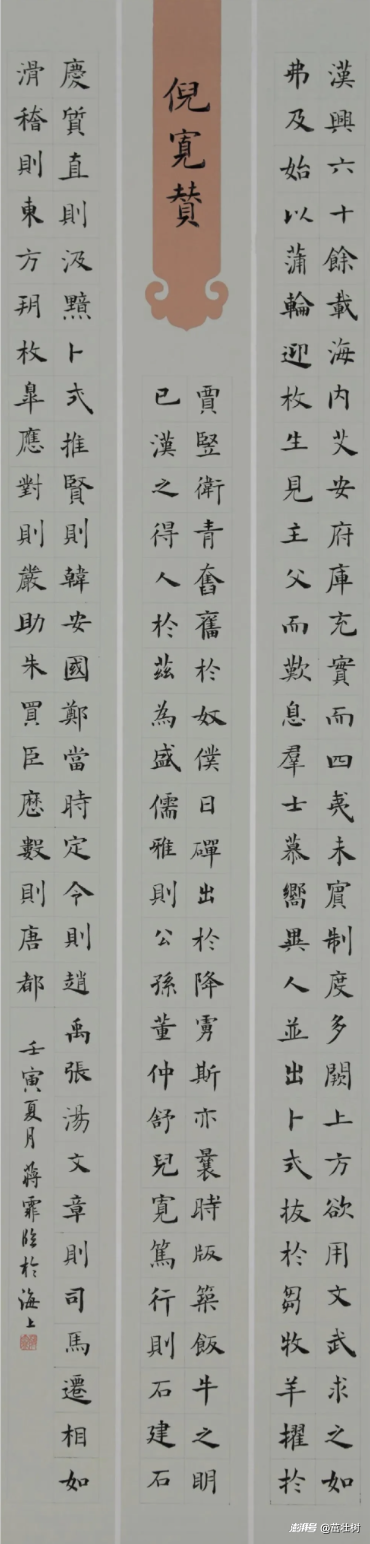 漢興六十餘載海内艾安府庫充實而四夷未賓制度多闕上方欲用文武求之如
弗及始以蒲輪迎枚生見主父而歎息羣士慕嚮異人並出卜式拔於芻牧羊擢於
倪寬贊
賈竪衛青奮舊於奴僕日磾出於降虜斯亦曩時版築飯牛之明
已漢之得人於茲為盛儒雅則公孫董仲舒兒寬篤行則石建石
慶質直則汲黯卜式推賢則韓安國鄭當時定令則趙禹張湯文章則司馬遷相如
滑稽則東方朔枚臯應對則嚴助朱買臣厯數則唐都
壬寅夏月蔣霏臨於海上
澎湃号 @茁壮树